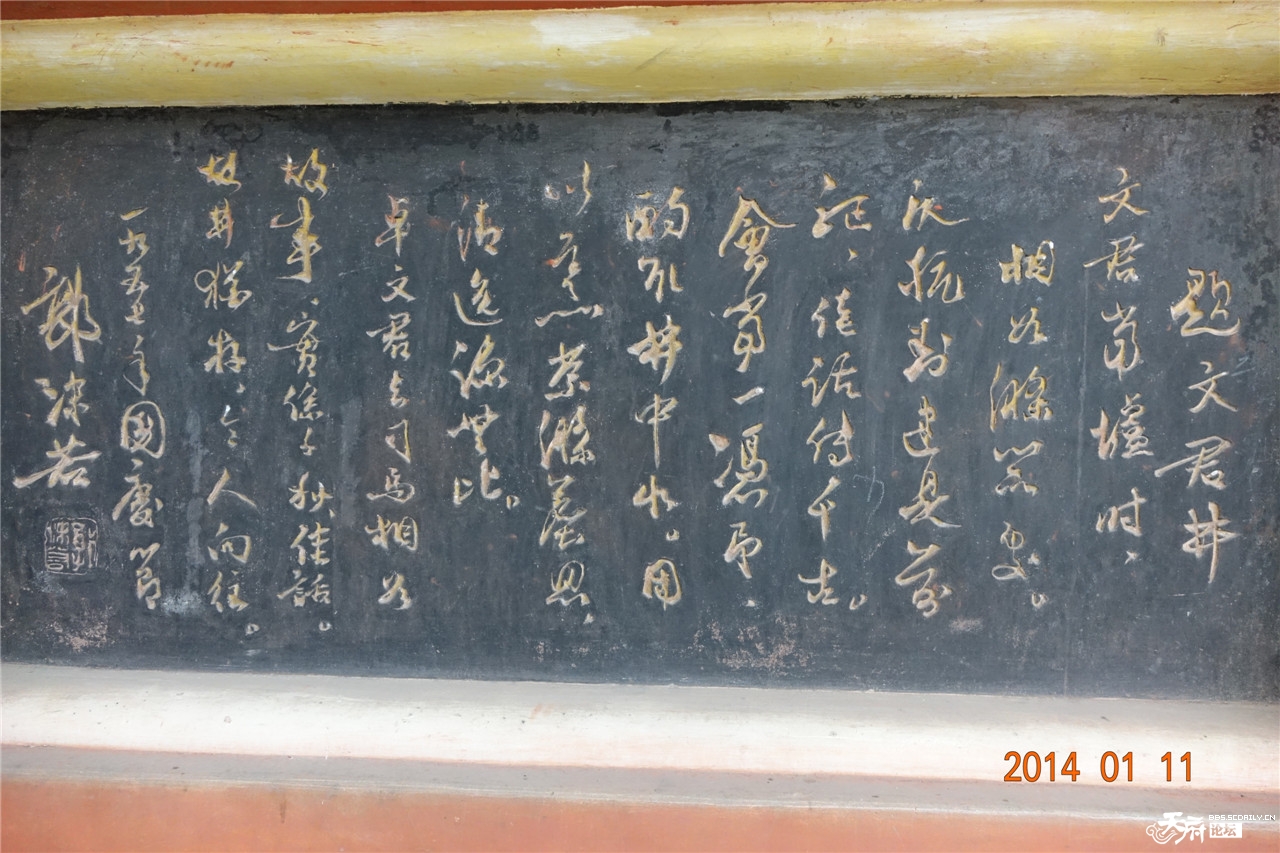 题文君井
文君當壚时、
相如滌器處。
反抗封建是前
驱、佳话传千古。
會當一憑吊、
酌取井中水。用
以烹茶滌塵思、
清逸凉無比。
卓文君与司馬相如
故事、實係千秋佳話。
故井猶存、令人向往。
一九五七年國慶節
郭沫若
2014 01 11
天府论坛
BBS.SCDAILY.CN